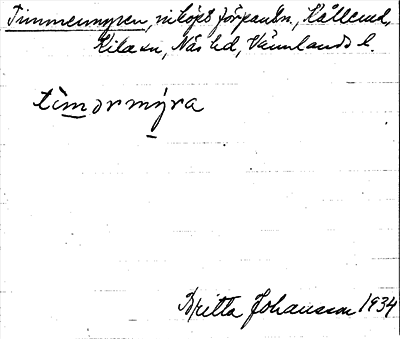 Timmermyren, inköpt förpantn., Källerud,
Kila sn, Näs hd, Värmlands l.
tìmərmýra
Britta Johansson 1934